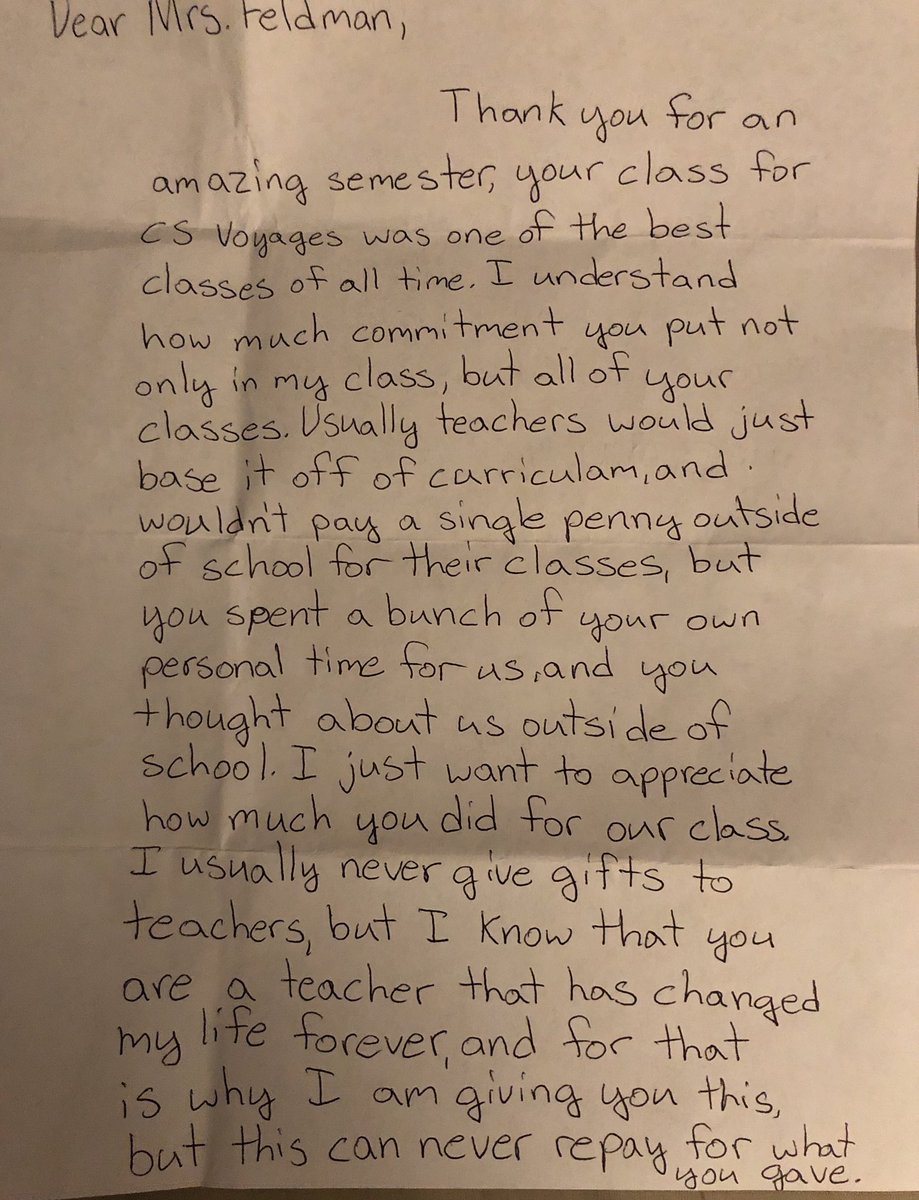 Dear Mrs. Feldman,
Thank you for an
amazing semester, your class for
CS Voyages was one of the best
classes of all time. I understand
how much commitment you put not
only in my class, but all of your
classes. Usually teachers would just
base it off of curriculam, and
wouldn't pay a single penny outside
of school for their classes, but
you spent a bunch of your own
personal time for us, and you
thought about us outside of
school. I just want to appreciate
how much you did for our class.
I usually never give gifts to
teachers, but I know that you
are a teacher that has changed
my life forever, and for that
is why I am giving you this,
but this can never repay for what
you gave.